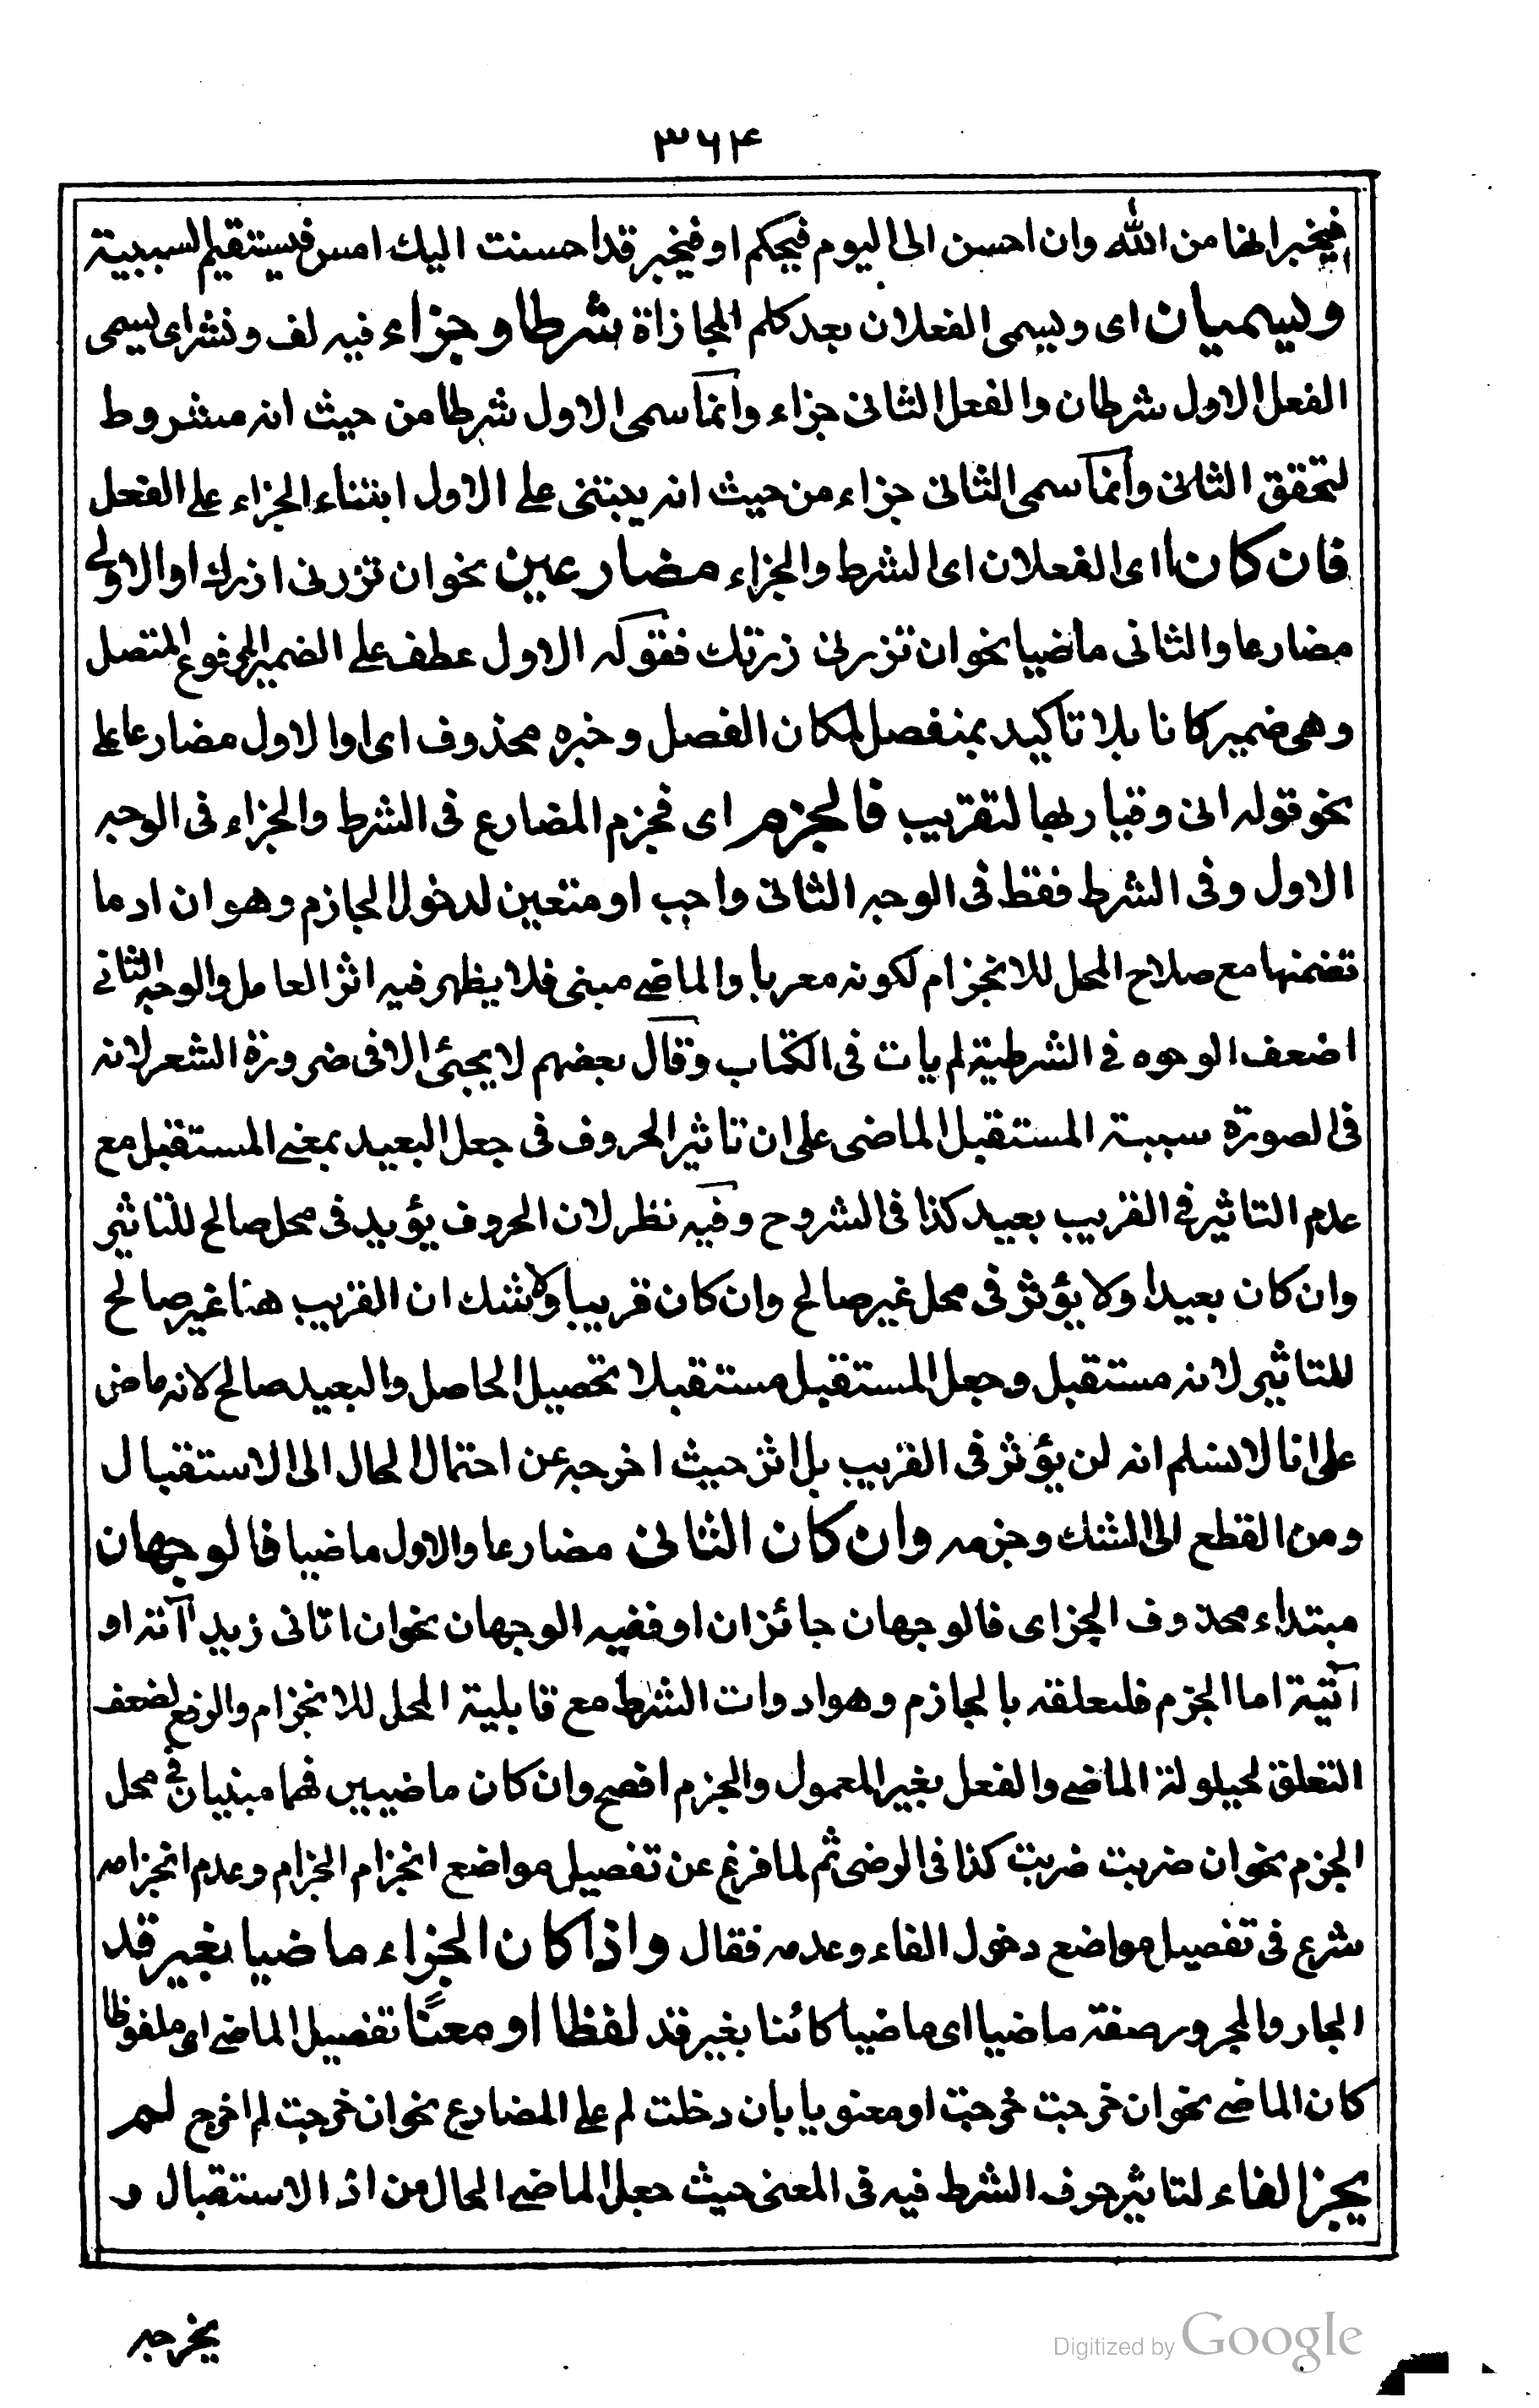 ۳۶۴
فيخبر انها من الله وان احسن الى اليوم فيحكم او فيخبر قد احسنت اليك امس فيستقيم السببية
ويسميان اى ويسمى الفعلان بعد كلم المجازاة شرطا وجزاء فيه لف ونشر اى يسمى
الفعل الاول شرطان والفعل الثانى جزاء وانما سمى الاول شرطا من حيث انه مشروط
لتحقق الثانى وانما سمى الثانى جزاء من حيث انه يبتنى على الاول ابتناء الجزاء على الفعل
فان كانا اى الفعلان اى الشرط والجزاء مضارعين نحو ان تزرنى ازرك او الاول
مضارعا والثانى ماضيا نحو ان تزرنى زرتك فقوله الاول عطف على الضمير المرفوع المتصل
وهى ضمير كانا بلا تاكيد بمنفصل لمكان الفصل وخبره محذوف اى او الاول مضارعا على
نحو قوله انى وقيار بها لتقريب فالجزم اى فجزم المضارع فى الشرط والجزاء فى الوجه
الاول وفى الشرط فقط فى الوجه الثانى واجب او متعين لدخول الجازم وهو ان او ما
تضمنها مع صلاح المحل للانجزام لكونه معربا والماضى مبنى فلا يظهر فيه اثر العامل والوجه الثانى
اضعف الوجوه فى الشرطية لم يات فى الكتاب وقال بعضهم لا يجئ الا فى ضرورة الشعر لانه
فى الصورة سببية المستقبل الماضى على ان تاثير الحروف فى جعل البعيد بمعنى المستقبل مع
عدم التاثير فى القريب بعيد كذا فى الشروح وفيه نظر لان الحروف يؤيد فى محل صالح للتاثير
وان كان بعيدا ولا يؤثر فى محل غير صالح وان كان قريبا ولا شك ان القريب هنا غير صالح
للتاثير لانه مستقبل وجعل المستقبل مستقبلا تحصيل الحاصل والبعيد صالح لانه ماض
على انا لا نسلم انه لن يؤثر فى القريب بل اثر حيث اخرجه عن احتمال الحال الى الاستقبال
ومن القطع الى الشك وجزمه وان كان الثانى مضارعا والاول ماضيا فالوجهان
مبتداء محذوف الجزاى فالوجهان جائزان او ففيه الوجهان نحو ان اتانى زيد آته او
آتية اما الجزم فلتعلقه بالجازم وهو ادوات الشرط مع قابلية المحل للانجزام والرفع لضعف
التعلق لحيلولة الماضى والفعل بغير المعمول والجزم افصح وان كان ماضيين فهما مبنيان فى محل
الجزم نحو ان ضربت ضربت كذا فى الرضى ثم لما فرغ عن تفصيل مواضع انجزام الجزام وعدم انجزامه
شرع فى تفصيل مواضع دخول الفاء وعدمه فقال واذا كان الجزاء ماضيا بغير قد
الجار والمجرور صفة ماضيا اى ماضيا كائنا بغير قد لفظا او معنًا تفصيل الماضى اى ملفوظا
كان الماضى نحو ان خرجت خرجت او معنويا بان دخلت لم على المضارع نحو ان خرجت لم اخرج لم
يجز الفاء لتاثير حرف الشرط فيه فى المعنى حيث جعل الماضى الحال من اذ الاستقبال و
يخرجه
Digitized by Google